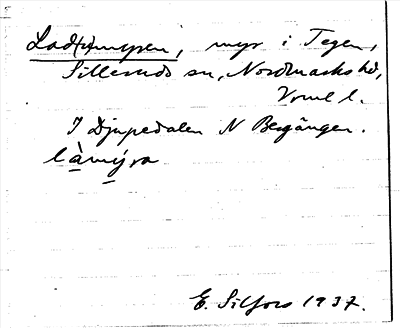 Lad(u)myren, myr i Tegen,
Silleruds sn, Nordmarks hd,
Vrml l.
I Djupedalen N Bergängen.
làmýra
E. Silfors 1937.